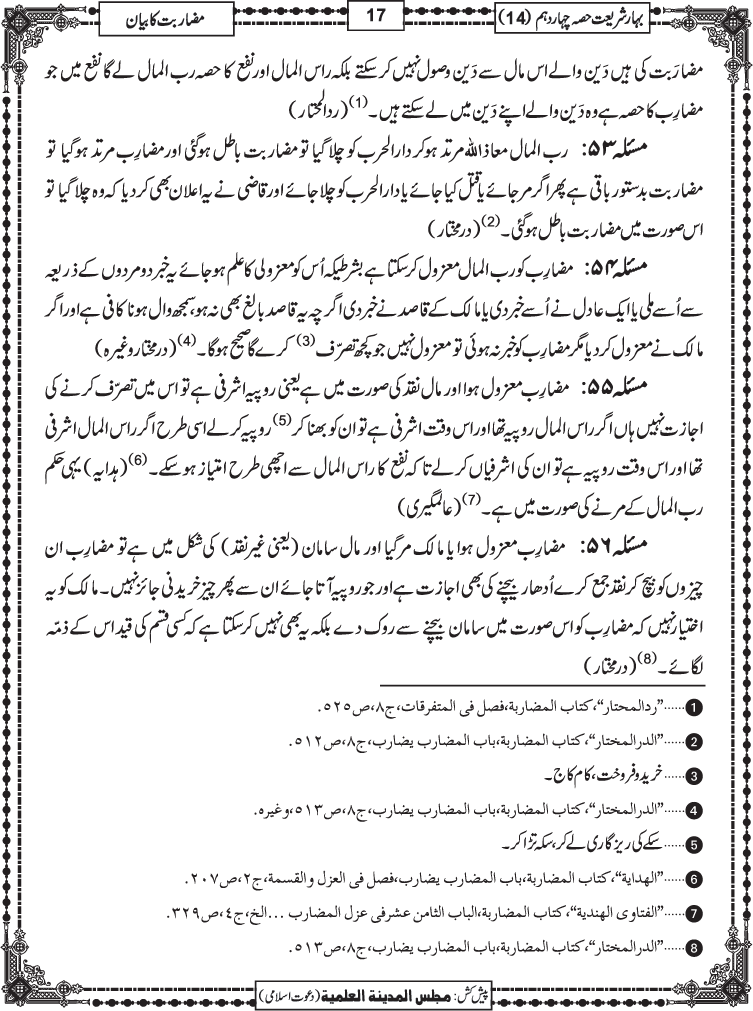 بہارِ شریعت حصہ چہاردہم (14)
17
مضاربت کا بیان
مضارَبت کی ہیں دَین والے اس مال سے دَین وصول نہیں کرسکتے بلکہ راس المال اور نفع کا حصہ رب المال لے گا نفع میں جو
مضارِب کا حصہ ہے وہ دَین والے اپنے دَین میں لے سکتے ہیں۔(1) (ردالمحتار)
مسئلہ ۵۳: رب المال معاذ اللہ مرتد ہوکر دارالحرب کو چلا گیا تو مضاربت باطل ہوگئی اور مضارِب مرتد ہوگیا تو
مضاربت بدستور باقی ہے پھر اگر مرجائے یا قتل کیا جائے یا دارالحرب کو چلا جائے اور قاضی نے یہ اعلان بھی کردیا کہ وہ چلا گیا تو
اس صورت میں مضاربت باطل ہوگئی۔(2) (درمختار)
مسئلہ ۵۴: مضارِب کو رب المال معزول کرسکتا ہے بشرطیکہ اُس کو معزولی کا علم ہوجائے یہ خبر دو مردوں کے ذریعہ
سے اُسے ملی یا ایک عادل نے اُسے خبر دی یا مالک کے قاصد نے خبر دی اگرچہ یہ قاصد بالغ بھی نہ ہو، سمجھ وال ہونا کافی ہے اور اگر
مالک نے معزول کردیا مگر مضارِب کو خبر نہ ہوئی تو معزول نہیں جو کچھ تصرّف(3) کرے گا صحیح ہوگا۔(4) (درمختار وغیرہ)
مسئلہ ۵۵: مضارِب معزول ہوا اور مال نقد کی صورت میں ہے یعنی روپیہ اشرفی ہے تو اس میں تصرّف کرنے کی
اجازت نہیں ہاں اگر راس المال روپیہ تھا اور اس وقت اشرفی ہے تو ان کو بھنا کر(5) روپیہ کرلے اسی طرح اگر راس المال اشرفی
تھا اور اس وقت روپیہ ہے تو ان کی اشرفیاں کرلے تاکہ نفع کا راس المال سے اچھی طرح امتیاز ہوسکے۔(6) (ہدایہ) یہی حکم
رب المال کے مرنے کی صورت میں ہے۔(7) (عالمگیری)
مسئلہ ۵۶: مضارِب معزول ہوا یا مالک مرگیا اور مال سامان (یعنی غیر نقد) کی شکل میں ہے تو مضارِب ان
چیزوں کو بیچ کر نقد جمع کرے اُدھار بیچنے کی بھی اجازت ہے اور جو روپیہ آتا جائے ان سے پھر چیز خریدنی جائز نہیں۔ مالک کو یہ
اختیار نہیں کہ مضارِب کو اس صورت میں سامان بیچنے سے روک دے بلکہ یہ بھی نہیں کرسکتا ہے کہ کسی قسم کی قید اس کے ذمّہ
لگائے۔(8) (درمختار)
1......"ردالمحتار"، کتاب المضاربۃ، فصل فی المتفرقات، ج۸، ص۵۲۵.
2......"الدرالمختار"، کتاب المضاربۃ، باب المضارب یضارب، ج۸، ص۵۱۲.
3......خرید و فروخت، کام کاج۔
4......"الدرالمختار"، کتاب المضاربۃ، باب المضارب یضارب، ج۸، ص۵۱۳، وغیرہ.
5......سکے کی ریزگاری لے کر، سکہ تڑا کر۔
6......"الھدایۃ"، کتاب المضاربۃ، باب المضارب یضارب، فصل فی العزل والقسمۃ، ج۲، ص۲۰۷.
7......"الفتاوی الھندیۃ"، کتاب المضاربۃ، الباب الثامن عشر فی عزل المضارب ...الخ، ج٤، ص۳۲۹.
8......"الدرالمختار"، کتاب المضاربۃ، باب المضارب یضارب، ج۸، ص۵۱۳.
پیش کش: مجلس المدینۃ العلمیۃ (دعوت اسلامی)